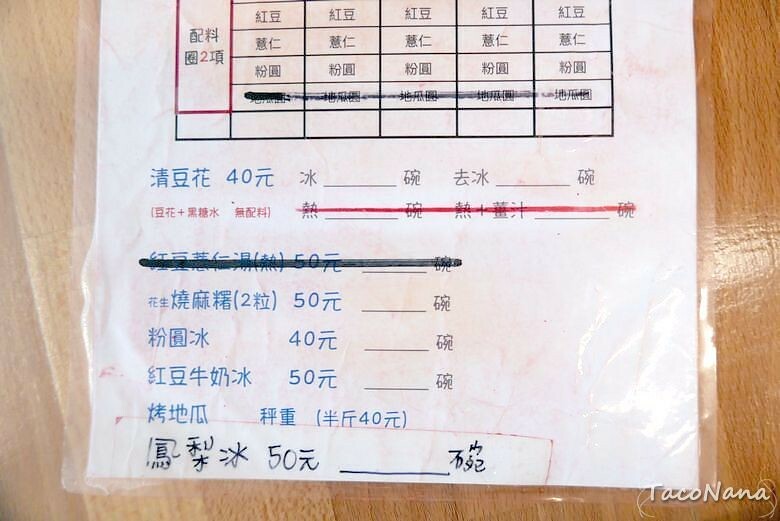 紅豆 紅豆 紅豆 紅豆 紅豆
配料 薏仁 薏仁 薏仁 薏仁 薏仁
圈2項 粉圓 粉圓 粉圓 粉圓 粉圓
地瓜圓 地瓜圓 地瓜圓 地瓜圓 地瓜圓
清豆花 40元 冰 ______ 碗 去冰 ______ 碗
(豆花+黑糖水 無配料) 熱 ______ 碗 熱+薑汁 ______ 碗
紅豆薏仁湯(熱) 50元 ______ 碗
花生燒麻糬(2粒) 50元 ______ 碗
粉圓冰 40元 ______ 碗
紅豆牛奶冰 50元 ______ 碗
烤地瓜 秤重 (半斤40元)
鳳梨冰 50元 ______ 碗
TacoNana